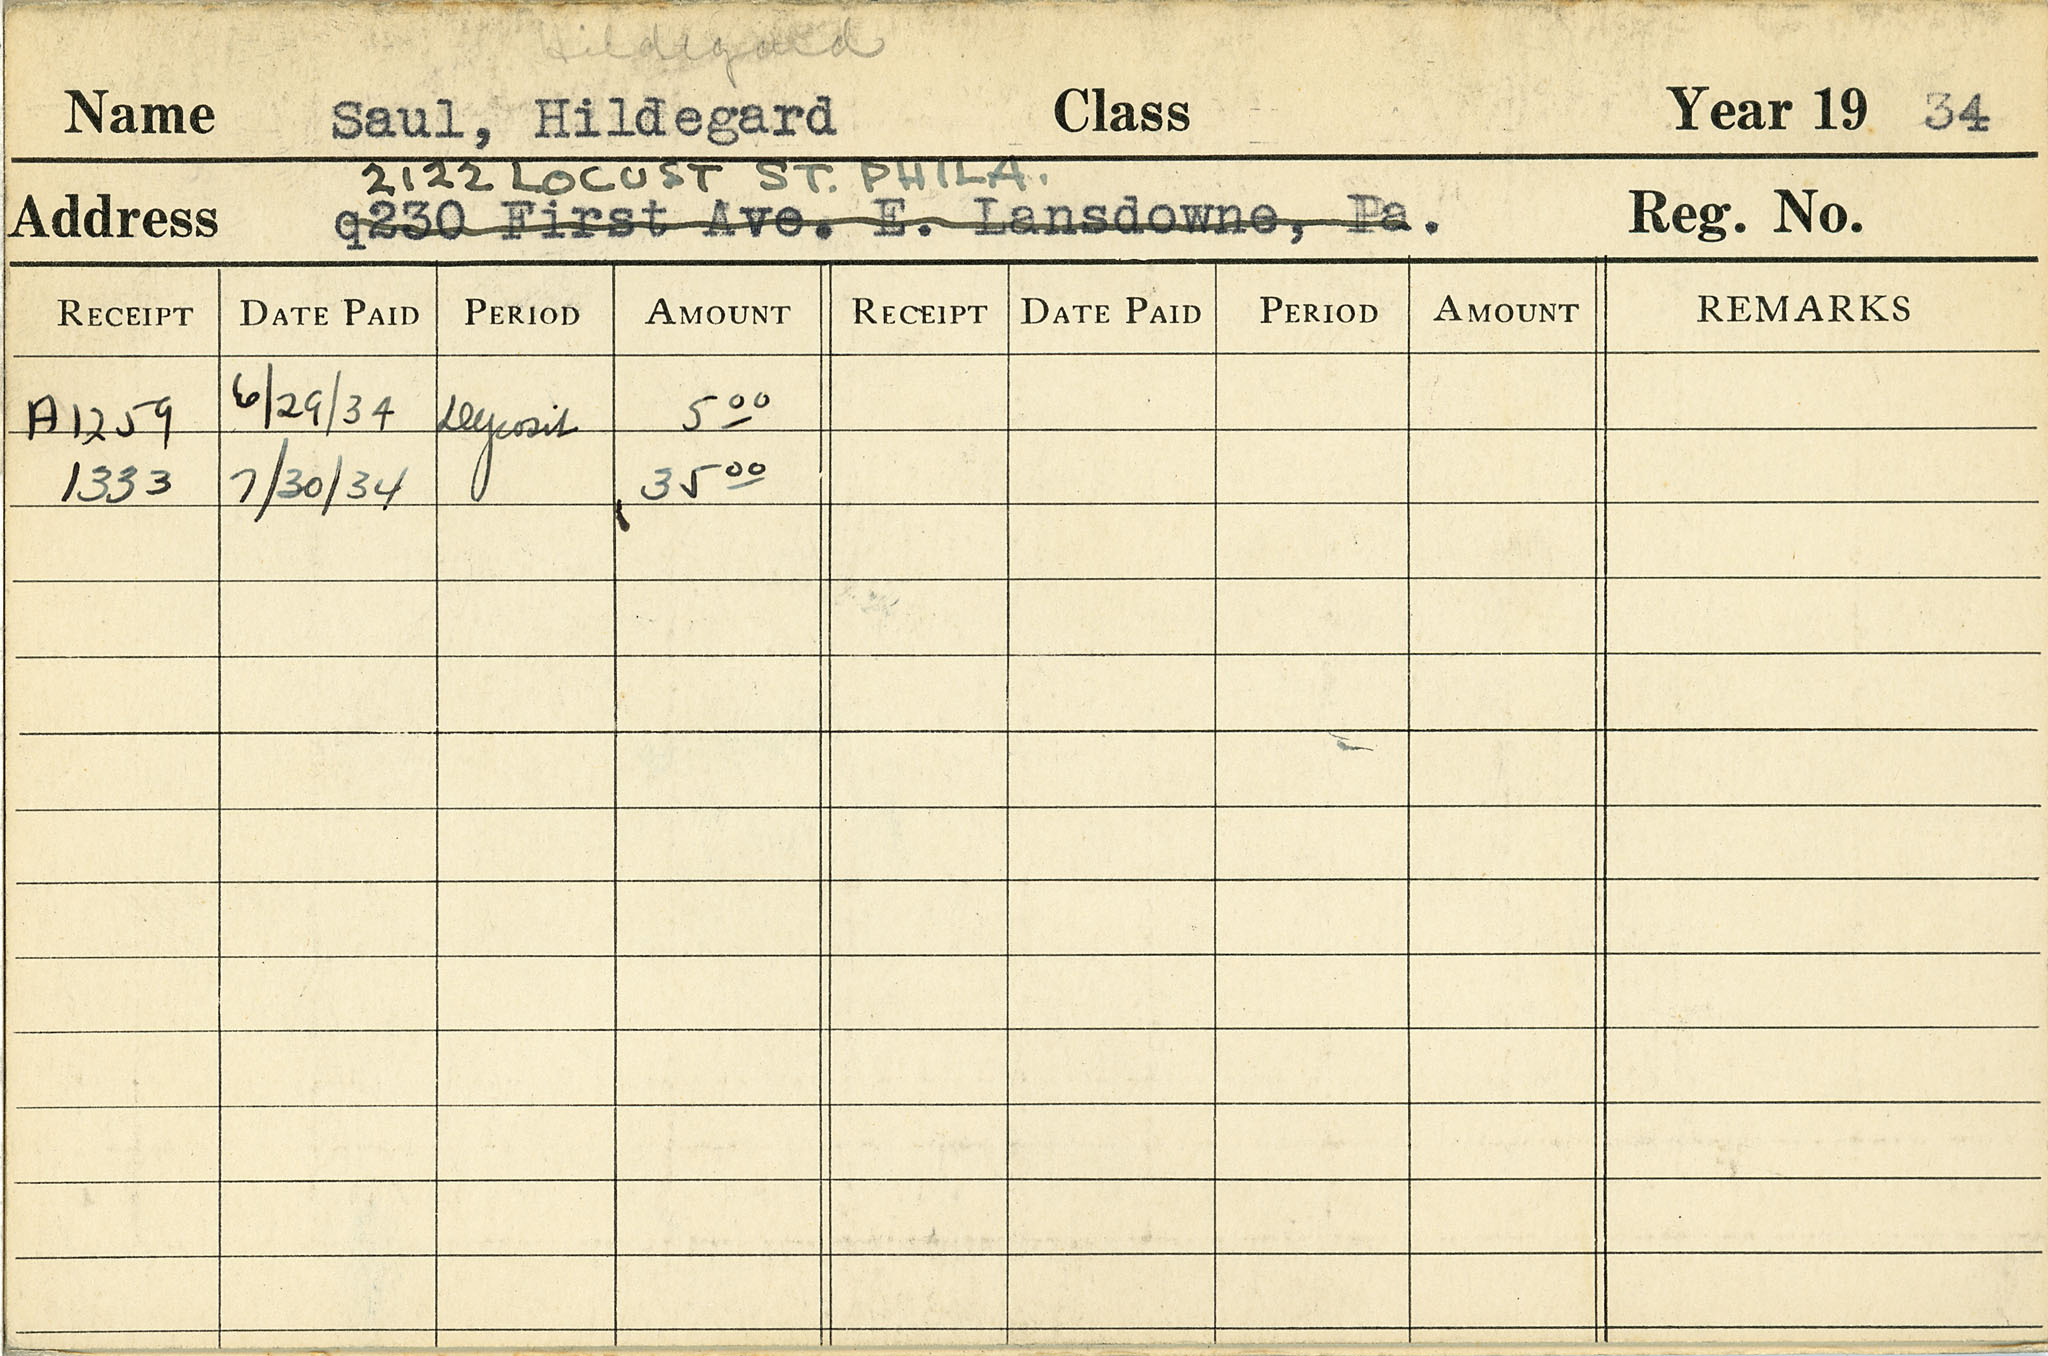 Hildegard
Name Saul, Hildegard Class Year 19 34
2122 LOCUST ST. PHILA.
Address q230 First Ave. E. Lansdowne, Pa. Reg. No.
RECEIPT DATE PAID PERIOD AMOUNT RECEIPT DATE PAID PERIOD AMOUNT REMARKS
A1259 6/29/34 Deposit 5 00
1333 7/30/34 35 00